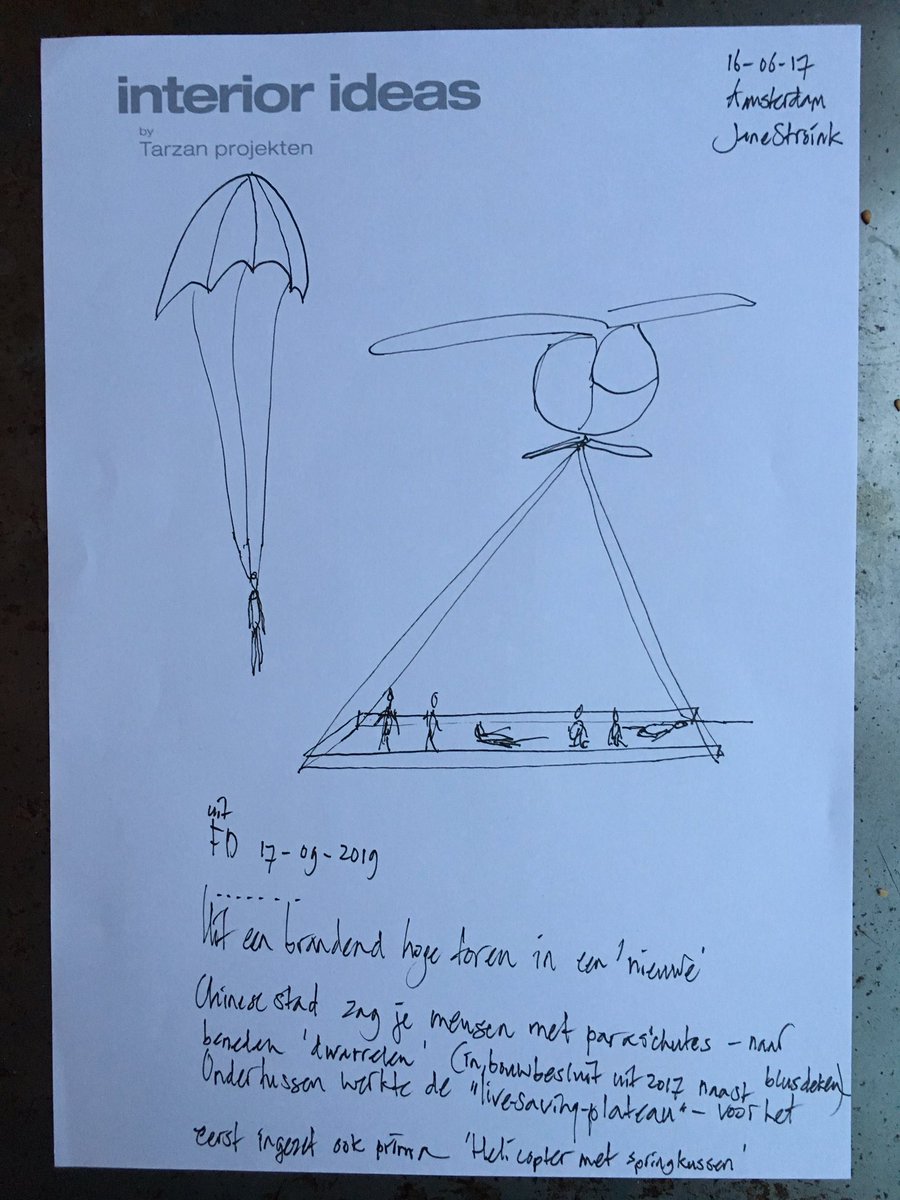 interior ideas
by
Tarzan projekten
16-06-17
Amsterdam
Jane Stroink
uit
FD 17-09-2019
Uit een brandend hoge toren in een 'nieuwe'
Chinese stad zag je mensen met parachutes - naar
beneden 'dwarrelen' (in bouwbesluit uit 2017 naast blusdeken)
Ondertussen werkte de "live-saving-plateau" - voor het
eerst ingezet ook prima 'Helicopter met springkussen'